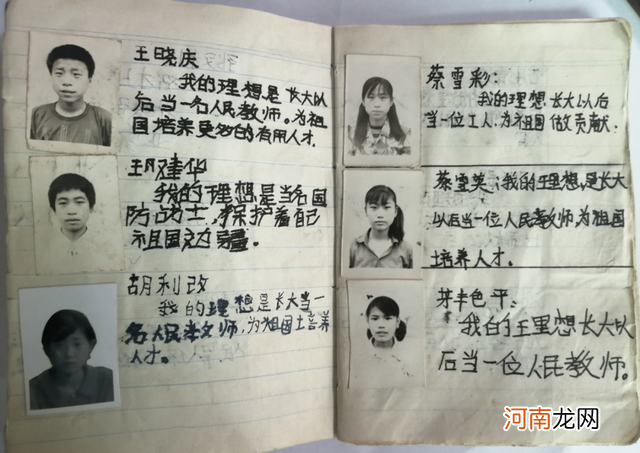 王晓庆
我的理想是长大以
后当一名人民教师。为祖
国培养更多的有用人才.
王建华
我的理想是当名国
防占戈士,保护着自己
祖国边疆。
胡利改
我的理想是长大当一
名人民教师,为祖国培养
人才.
蔡雪彩:
我的理想长大以后
当一位工人.为祖国做贡献.
蔡雪英:我的理想,是长大
以后当一位人民教师,为祖国
培养人才.
平:
我的理想长大以
后当一位人民教师。
河南龙网